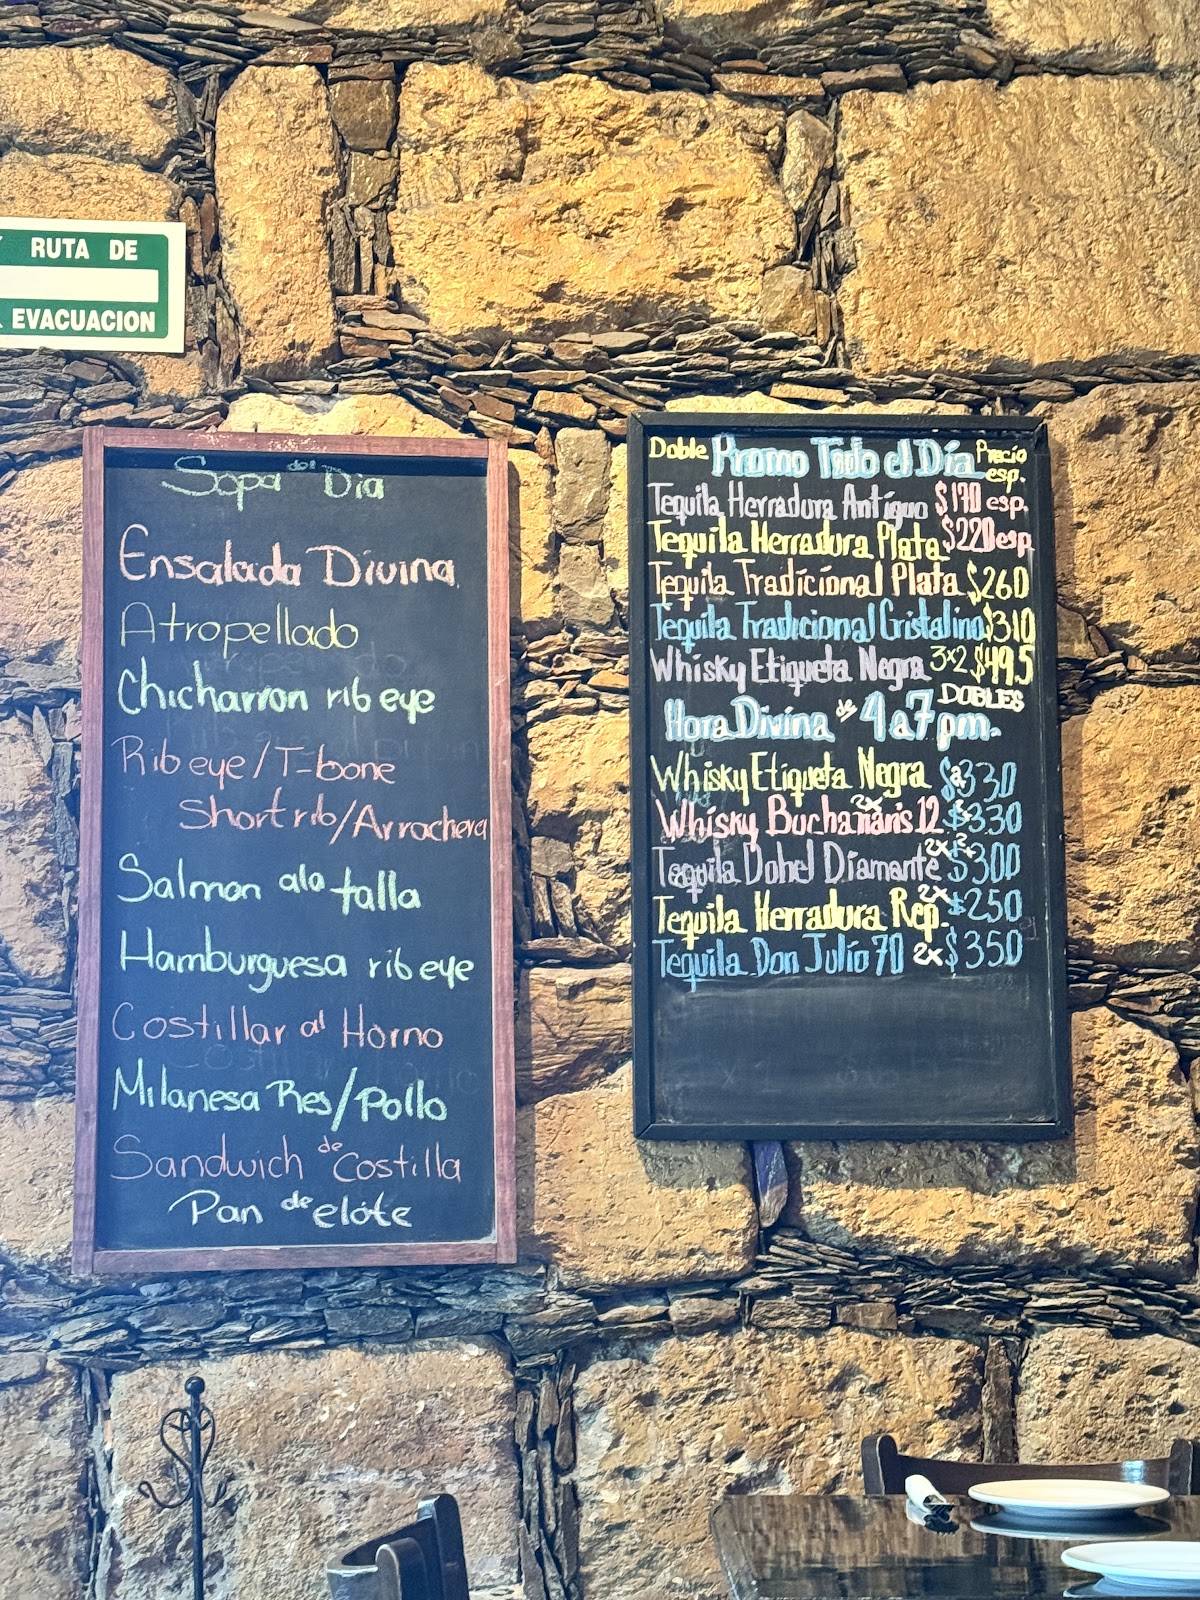 RUTA DE
EVACUACION
Sopa del Dia
Ensalada Divina
Atropellado
Chicharron rib eye
Rib eye/T-bone
Short rib/Arrachera
Salmon ala talla
Hamburguesa rib eye
Costillar al Horno
Milanesa Res/Pollo
Sandwich de Costilla
Pan de elote
Doble Promo Todo el Día Precio esp.
Tequila Herradura Antiguo $170 esp.
Tequila Herradura Plata $220 esp
Tequila Tradicional Plata $260
Tequila Tradicional Cristalino $310
Whisky Etiqueta Negra 3x2 $495
DOBLES
Hora Divina de 4 a 7 pm.
Whisky Etiqueta Negra $330
Whisky Buchanan's 12 2x $330
Tequila Dobel Diamante 2x $300
Tequila Herradura Rep. 2x $250
Tequila Don Julio 70 2x $350